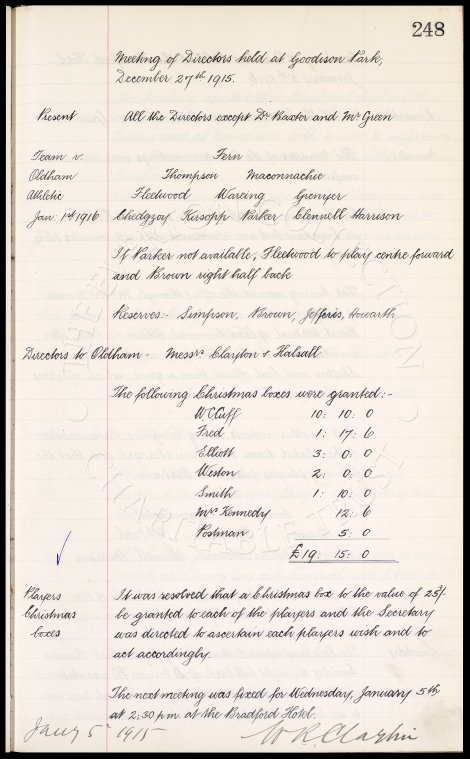 248
Meeting of Directors held at Goodison Park,
December 27th 1915.
Present All the Directors except Dr Baxter and Mr Green
Team v. Fern
Oldham Thompson Maconnachie
Athletic Fleetwood Wareing Grenyer
Jan: 1st 1916 Chedgzoy Kirsopp Parker Clennell Harrison
If Parker not available, Fleetwood to play centre forward
and Brown right half back
Reserves:- Simpson, Brown, Jefferis, Howarth
Directors to Oldham - Messrs Clayton & Halsall
The following Christmas boxes were granted:-
W Cuff 10: 10: 0
Fred 1: 17: 6
Elliott 3: 0: 0
Weston 2: 0: 0
Smith 1: 10: 0
Mrs Kennedy 12: 6
Postman 5: 0
£19: 15: 0
Players It was resolved that a Christmas box to the value of 25/-
Christmas be granted to each of the players and the Secretary
boxes was directed to ascertain each players wish and to
act accordingly.
The next meeting was fixed for Wednesday, January 5th
at 2.30 p.m. at the Bradford Hotel.
Jany 5 1915 W R Clayton